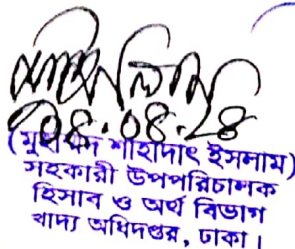 ০৪.০৪.২৪
(মুহাম্মদ শাহাদাৎ ইসলাম)
সহকারী উপপরিচালক
হিসাব ও অর্থ বিভাগ
খাদ্য অধিদপ্তর, ঢাকা।